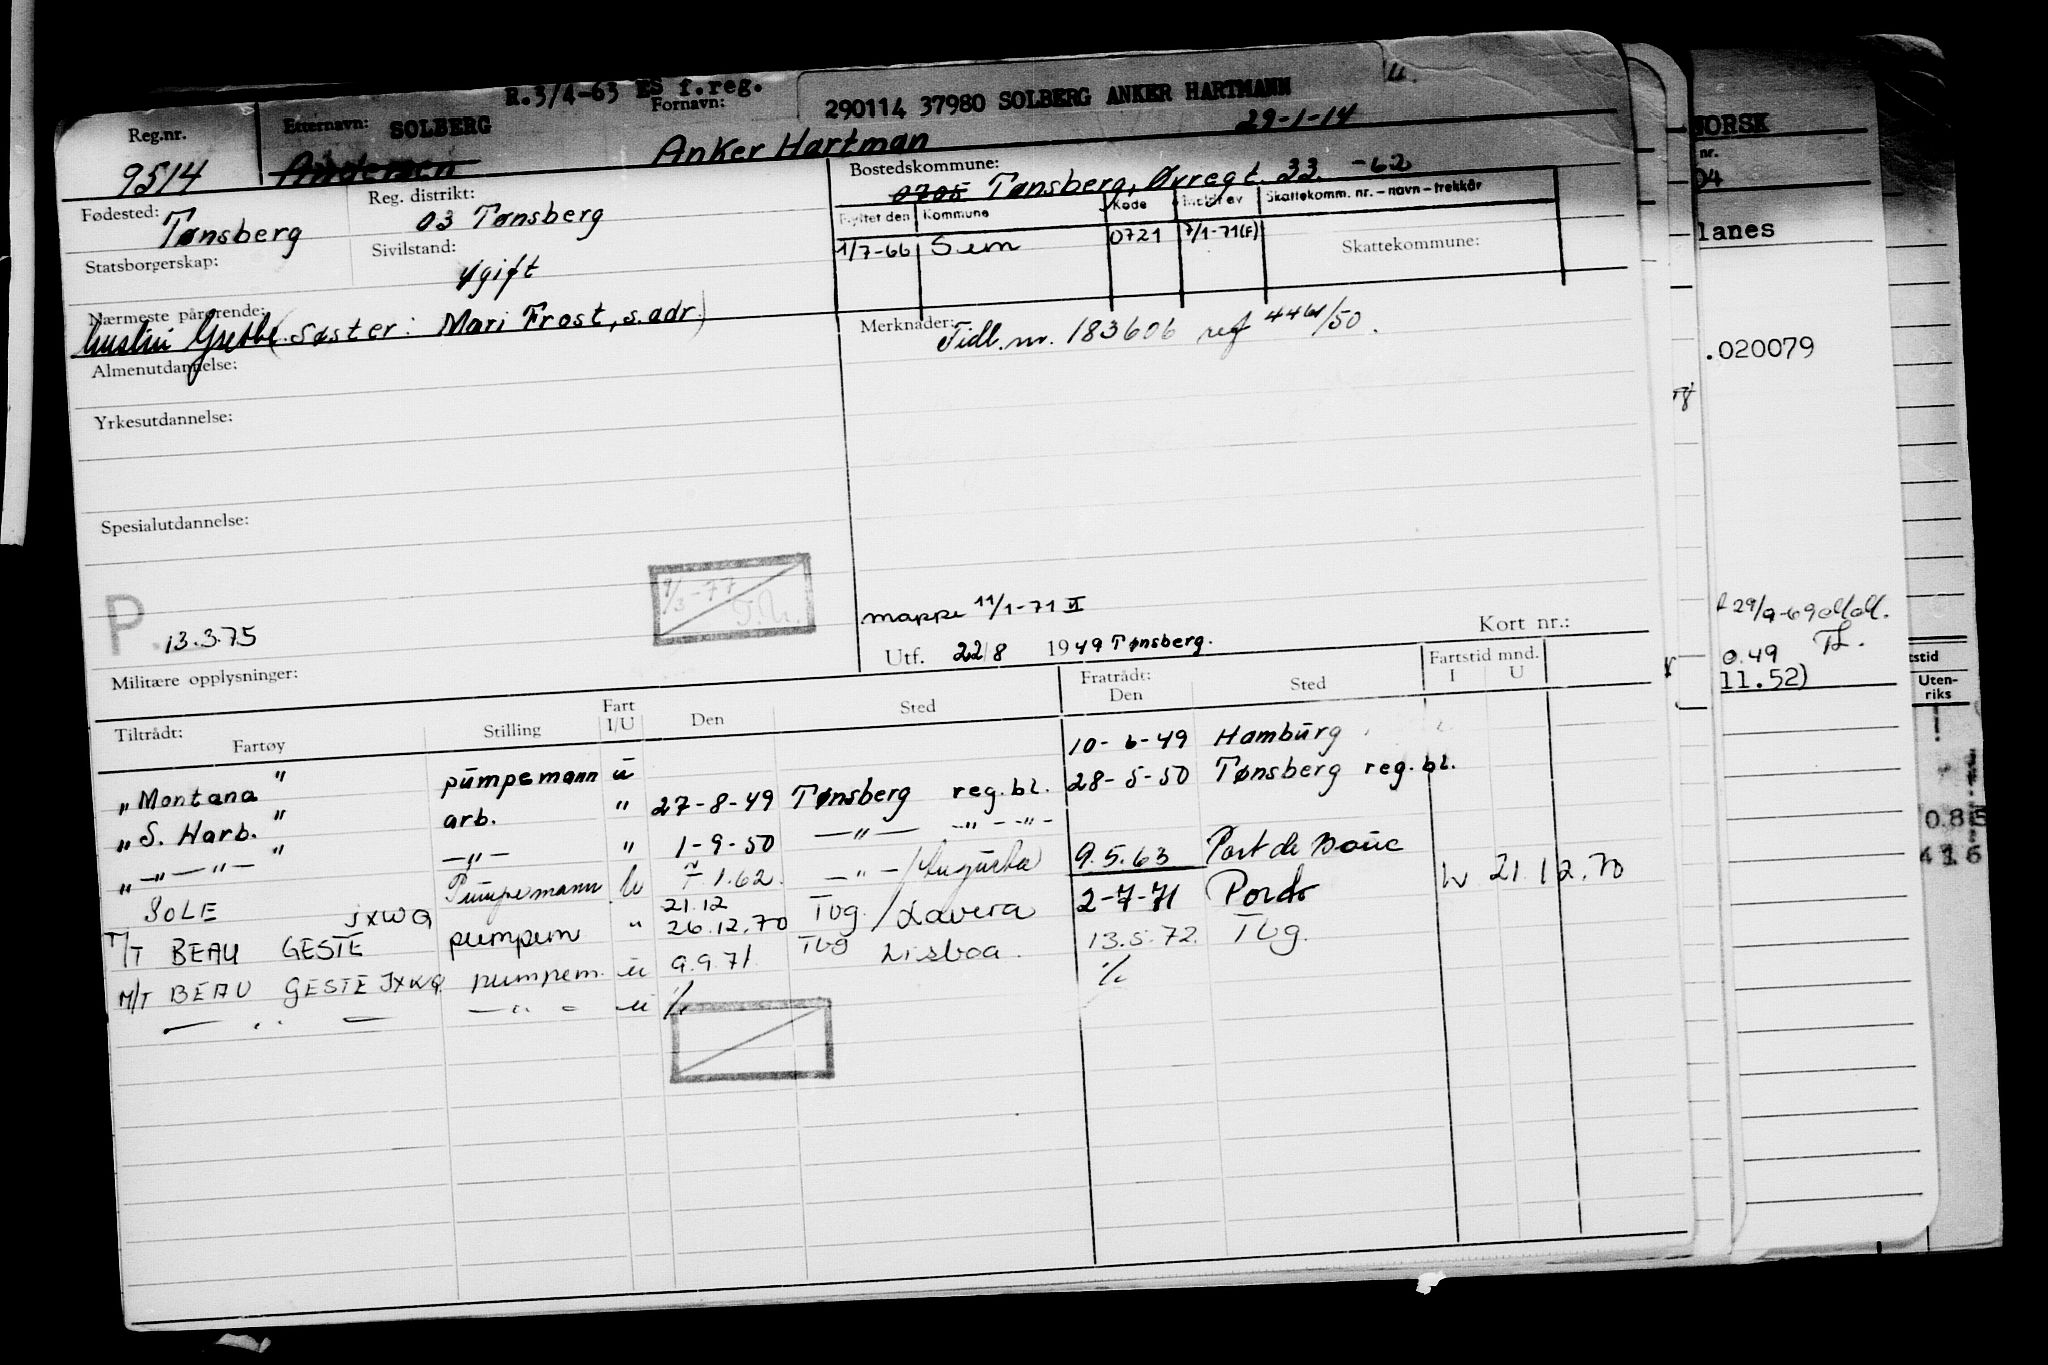 R.3/4-63 ES f.reg.
290114 37980 SOLBERG ANKER HARTMANN
Reg.nr. Etternavn: SOLBERG Fornavn: 29-1-14
9514 Andersen Anker Hartman
Bostedskommune: 0705 Tønsberg, Øvregt. 33. -62
Fødested: Tønsberg Reg. distrikt: 03 Tønsberg
Flyttet den Kommune Kode Skattekomm. nr. – navn – trekkår
1/7-66 Sem 0721 7/1-71(F) Skattekommune:
Statsborgerskap: Sivilstand: gift
Nærmeste pårørende: hustru Grethe (søster: Mari Frost, s. adr.)
Merknader: Tidl. nr. 183606 ref 4461/50.
Almenutdannelse:
Yrkesutdannelse:
Spesialutdannelse:
P. 13.3.75
mappe 11/1-71 VI
Utf. 22/8 1949 Tønsberg. Kort nr.:
Militære opplysninger:
Tiltrådt: Fartøy Stilling Fart I/U Den Sted Fratrådt: Den Sted Fartstid mnd. I U
"Montana" pumpemann u 10-6-49 Hamburg
"S. Harb." arb. " 27-8-49 Tønsberg reg.bl. 28-5-50 Tønsberg reg.bl.
"—"—"—" —"— " 1-9-50 —"— —"—"—
SOLE Pumpemann u 7.1.62. —"—/Augusta 9.5.63 Port de Bouc
T/T BEAU GESTE JXWQ pumpem " 21.12 26.12.70 Tbg./Lavera 2-7-71 Pordo u 21.12.70
M/T BEAU GESTE JXWQ pumpem. u 9.9.71 Tbg Lisboa. 13.5.72. Tbg.
— " — — " — u ./. ./.
NORSK
nr.
04
lanes
.020079
29/9-69
0.49
11.52)
tstid
Uten-
riks
0.85
416